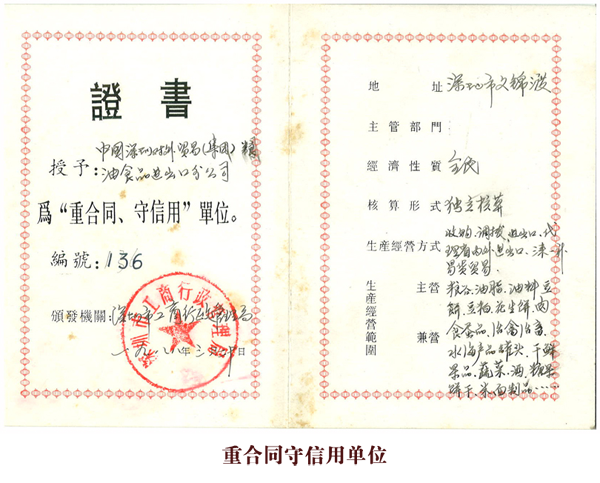 證書
授予:中國深圳对外贸易(集团)粮
油食品进出口分公司
爲“重合同、守信用”單位。
編號:136
頒發機關:深圳市工商行政管理局
一九八八年三月 日
深圳市工商行政管理局
地址 深圳市文锦渡
主管部門
經濟性質 全民
核算形式 独立核算
生產經營方式 收购、调拨、进出口、代
理省内外进出口、
易货贸易。
生產經營範圍
主營 粮谷、油脂、油料豆
餅、豆粕、花生餅、肉
食蛋品、活禽活畜、
兼營
水海产品罐头、干鲜
果品、蔬菜、酒、糖果
餅干、米面制品……
重合同守信用单位